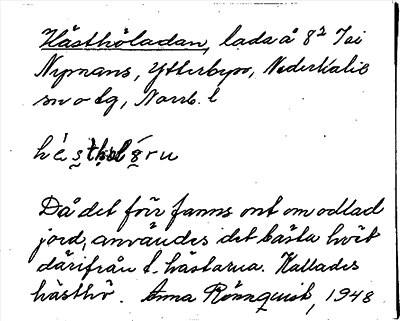 Hästhöladan, lada å 8² Tei
Nymans, Ytterbyn, Nederkalix
sn o tg, Norrb. l
Då det förr fanns ont om odlad
jord, användes det bästa höet
därifrån t. hästarna. Kallades
hästhö. Anna Rönnquist, 1948